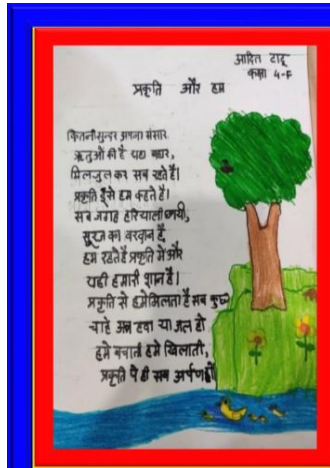 आदित टाडू
कक्षा 4-F
प्रकृति और हम
कितनी सुन्दर अपना संसार
ऋतुओं की है यहा बहार,
मिलजुल कर सब रहते है।
प्रकृति इसे हम कहते है।
सब जगह हरियाली छायी,
सूरज का वरदान है,
हम रहते है प्रकृति में और
यही हमारी शान है।
प्रकृति से हमे मिलता है सब कुछ
चाहे अन्न हवा या जल हो
हमे बचाती हमे खिलाती,
प्रकृति पे ही सब अर्पण हो